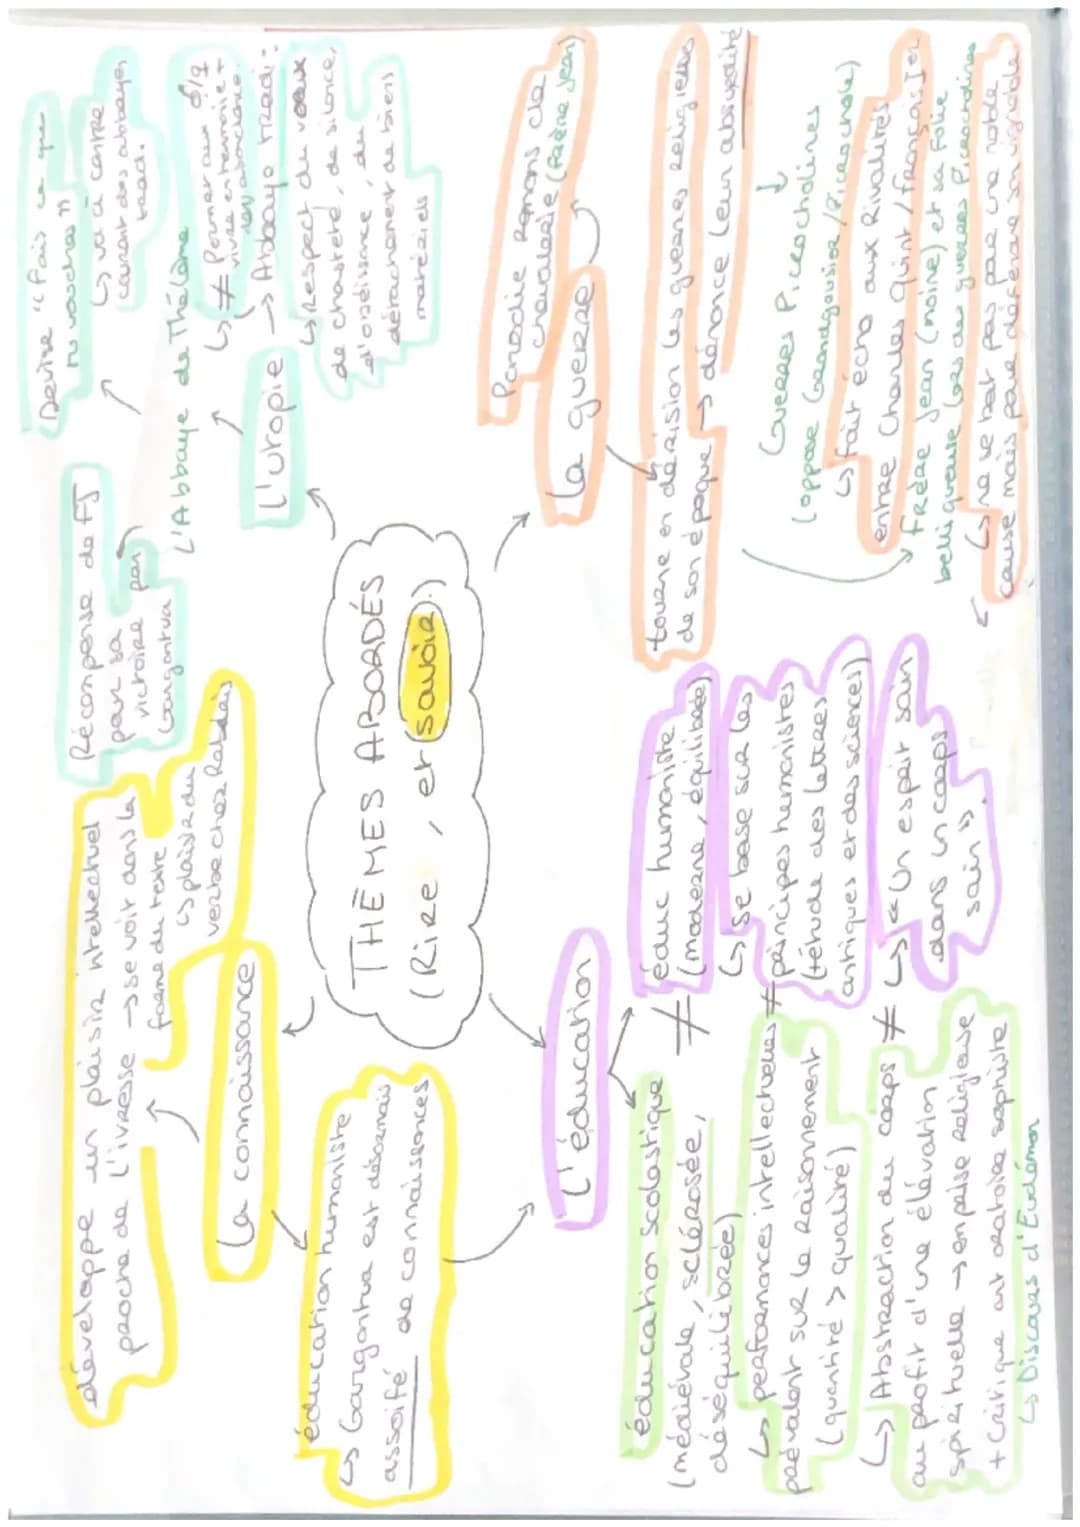 THÈMES ABORDÉS
(Rire, et savoir)
développe un plaisir intellectuel
proche de l'ivresse → se voit dans la
forme du texte
↳ plaisir du
verbe chez Rabelais
La connaissance
éducation humaniste
↳ Gargantua est désormais
assoifé de connaissances
Récompense de FJ
pour sa
victoire par
Gargantua
Devise "Fais ce que
tu voudras"
↳ va à contre
courant des abbayes
trad.
L'Abbaye de Thélème
↳ ≠ Permet aux ♂/♀
vivre en harmonie +
→ Abbaye tradi :
↳ respect du vœux
de chasteté, de silence,
d'obéissance, du
détachement de biens
matériels
L'utopie
L'éducation
éducation scolastique
(médiévale, sclérosée,
déséquilibrée)
↳ performances intellectuelles
prévalent sur le raisonnement
(quantité > qualité)
↳ Abstraction du corps
au profit d'une élévation
spirituelle → emprise religieuse
+ Critique art oratoire sophiste
↳ Discours d'Eudémon
≠
éduc humaniste
(moderne, équilibrée)
↳ se base sur les
≠ principes humanistes
(+étude des lettres
antiques et des sciences)
≠ ↳ "Un esprit sain
dans un corps
sain".
Parodie romans de
chevalerie (frère Jean)
La guerre
tourne en dérision les guerres religieuses
de son époque → dénonce leur absurdité
Guerres Picrocholines
(oppose Grandgousier/Picrochole)
↳ fait écho aux Rivalités
entre Charles Quint/François Ier
Frère Jean (moine) et sa folie
belliqueuse lors des guerres Picrocholines
↳ ne se bat pas pour une noble
cause mais pour défendre son vignoble